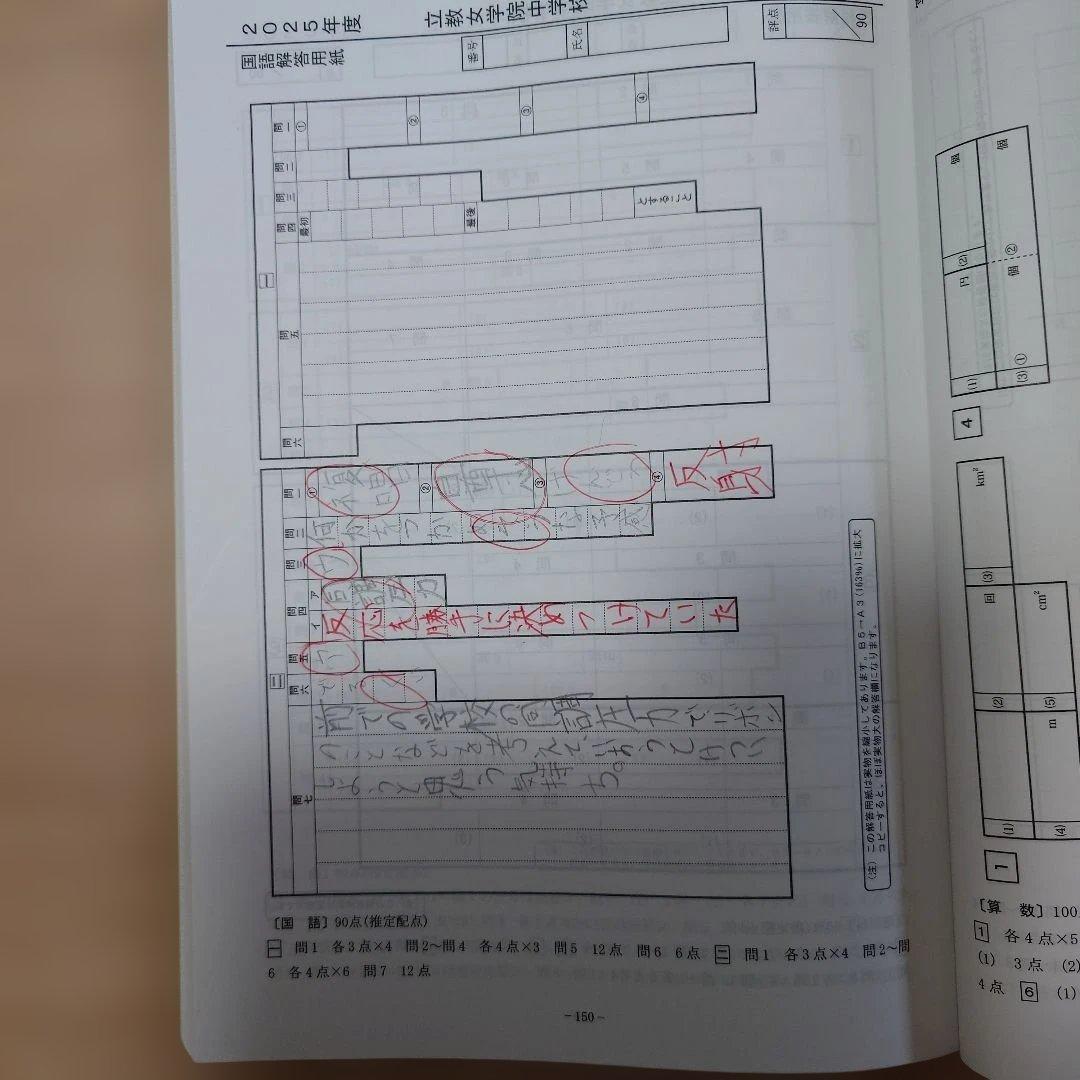 2025年度
立教女学院中学校
国語解答用紙
番号
氏名
評点
/90
一
問一
①
②
③
④
問二
問三
問四
最初
最後
とすること
問五
問六
二
問一
①
②
③
④
反射
問二
何かをつか
な予感
問三
ウ
問四
ア
イ
反応を勝手に決めつけていた
問五
ウ
問六
問七
前での学校の同調圧力でリボン
のことなどを考えて
しようと思う気持ち。
(注) この解答用紙は実物を縮小してあります。B5→A3(163%)に拡大
コピーすると、ほぼ実物大の解答欄になります。
〔国 語〕90点(推定配点)
一 問1 各3点×4 問2~問4 各4点×3 問5 12点 問6 6点 二 問1 各3点×4 問2~問
6 各4点×6 問7 12点
-150-
4
(1)
円
(2)
個
(3)①
個
②
個
1
(1)
m
(2)
回
(3)
km²
(4)
(5)
cm²
〔算 数〕100
1 各4点×5
(1) 3点 (2)
4点 6 (1)